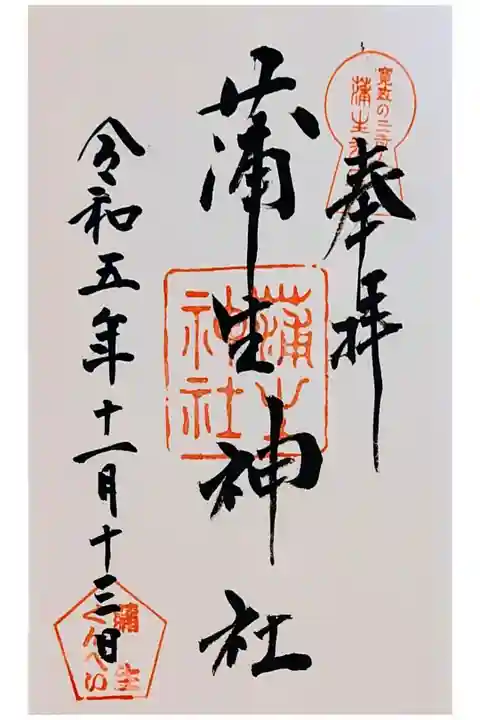 奉拝
蒲生神社
令和五年十一月十三日
寛政の三奇人
蒲生
蒲生神社
蒲生
くんぺい